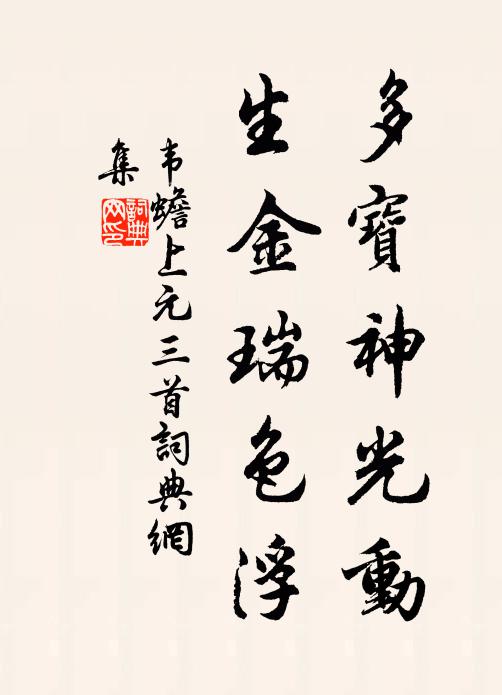 多寶神光動
生金瑞色浮
韦蟾上元三首詞典網
集
詞典
网印